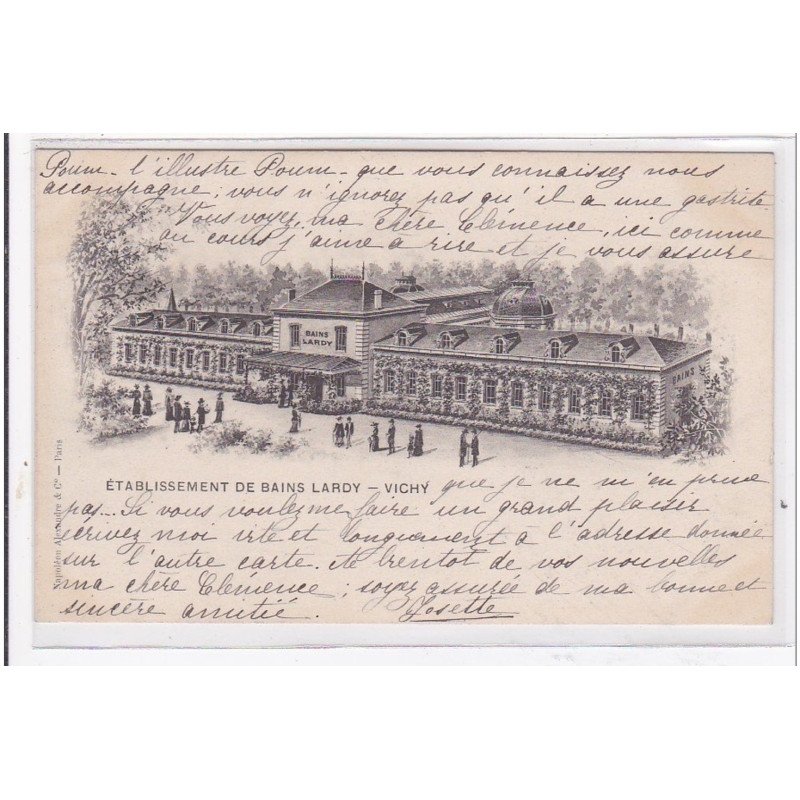 Poum - l'illustre Poum - que vous connaissez nous
accompagne; vous n'ignorez pas qu'il a une gastrite.
Vous voyez, ma chère Clémence, ici comme
au cours j'aime à rire et je vous assure
BAINS
LARDY
BAINS
ÉTABLISSEMENT DE BAINS LARDY – VICHY
que je ne m'en prive
pas... Si vous voulez me faire un grand plaisir
écrivez moi vite et longuement à l'adresse donnée
sur l'autre carte. A bientôt de vos nouvelles
ma chère Clémence; soyez assurée de ma bonne et
sincère amitié. Josette
Napoléon Alexandre & Cie — Paris